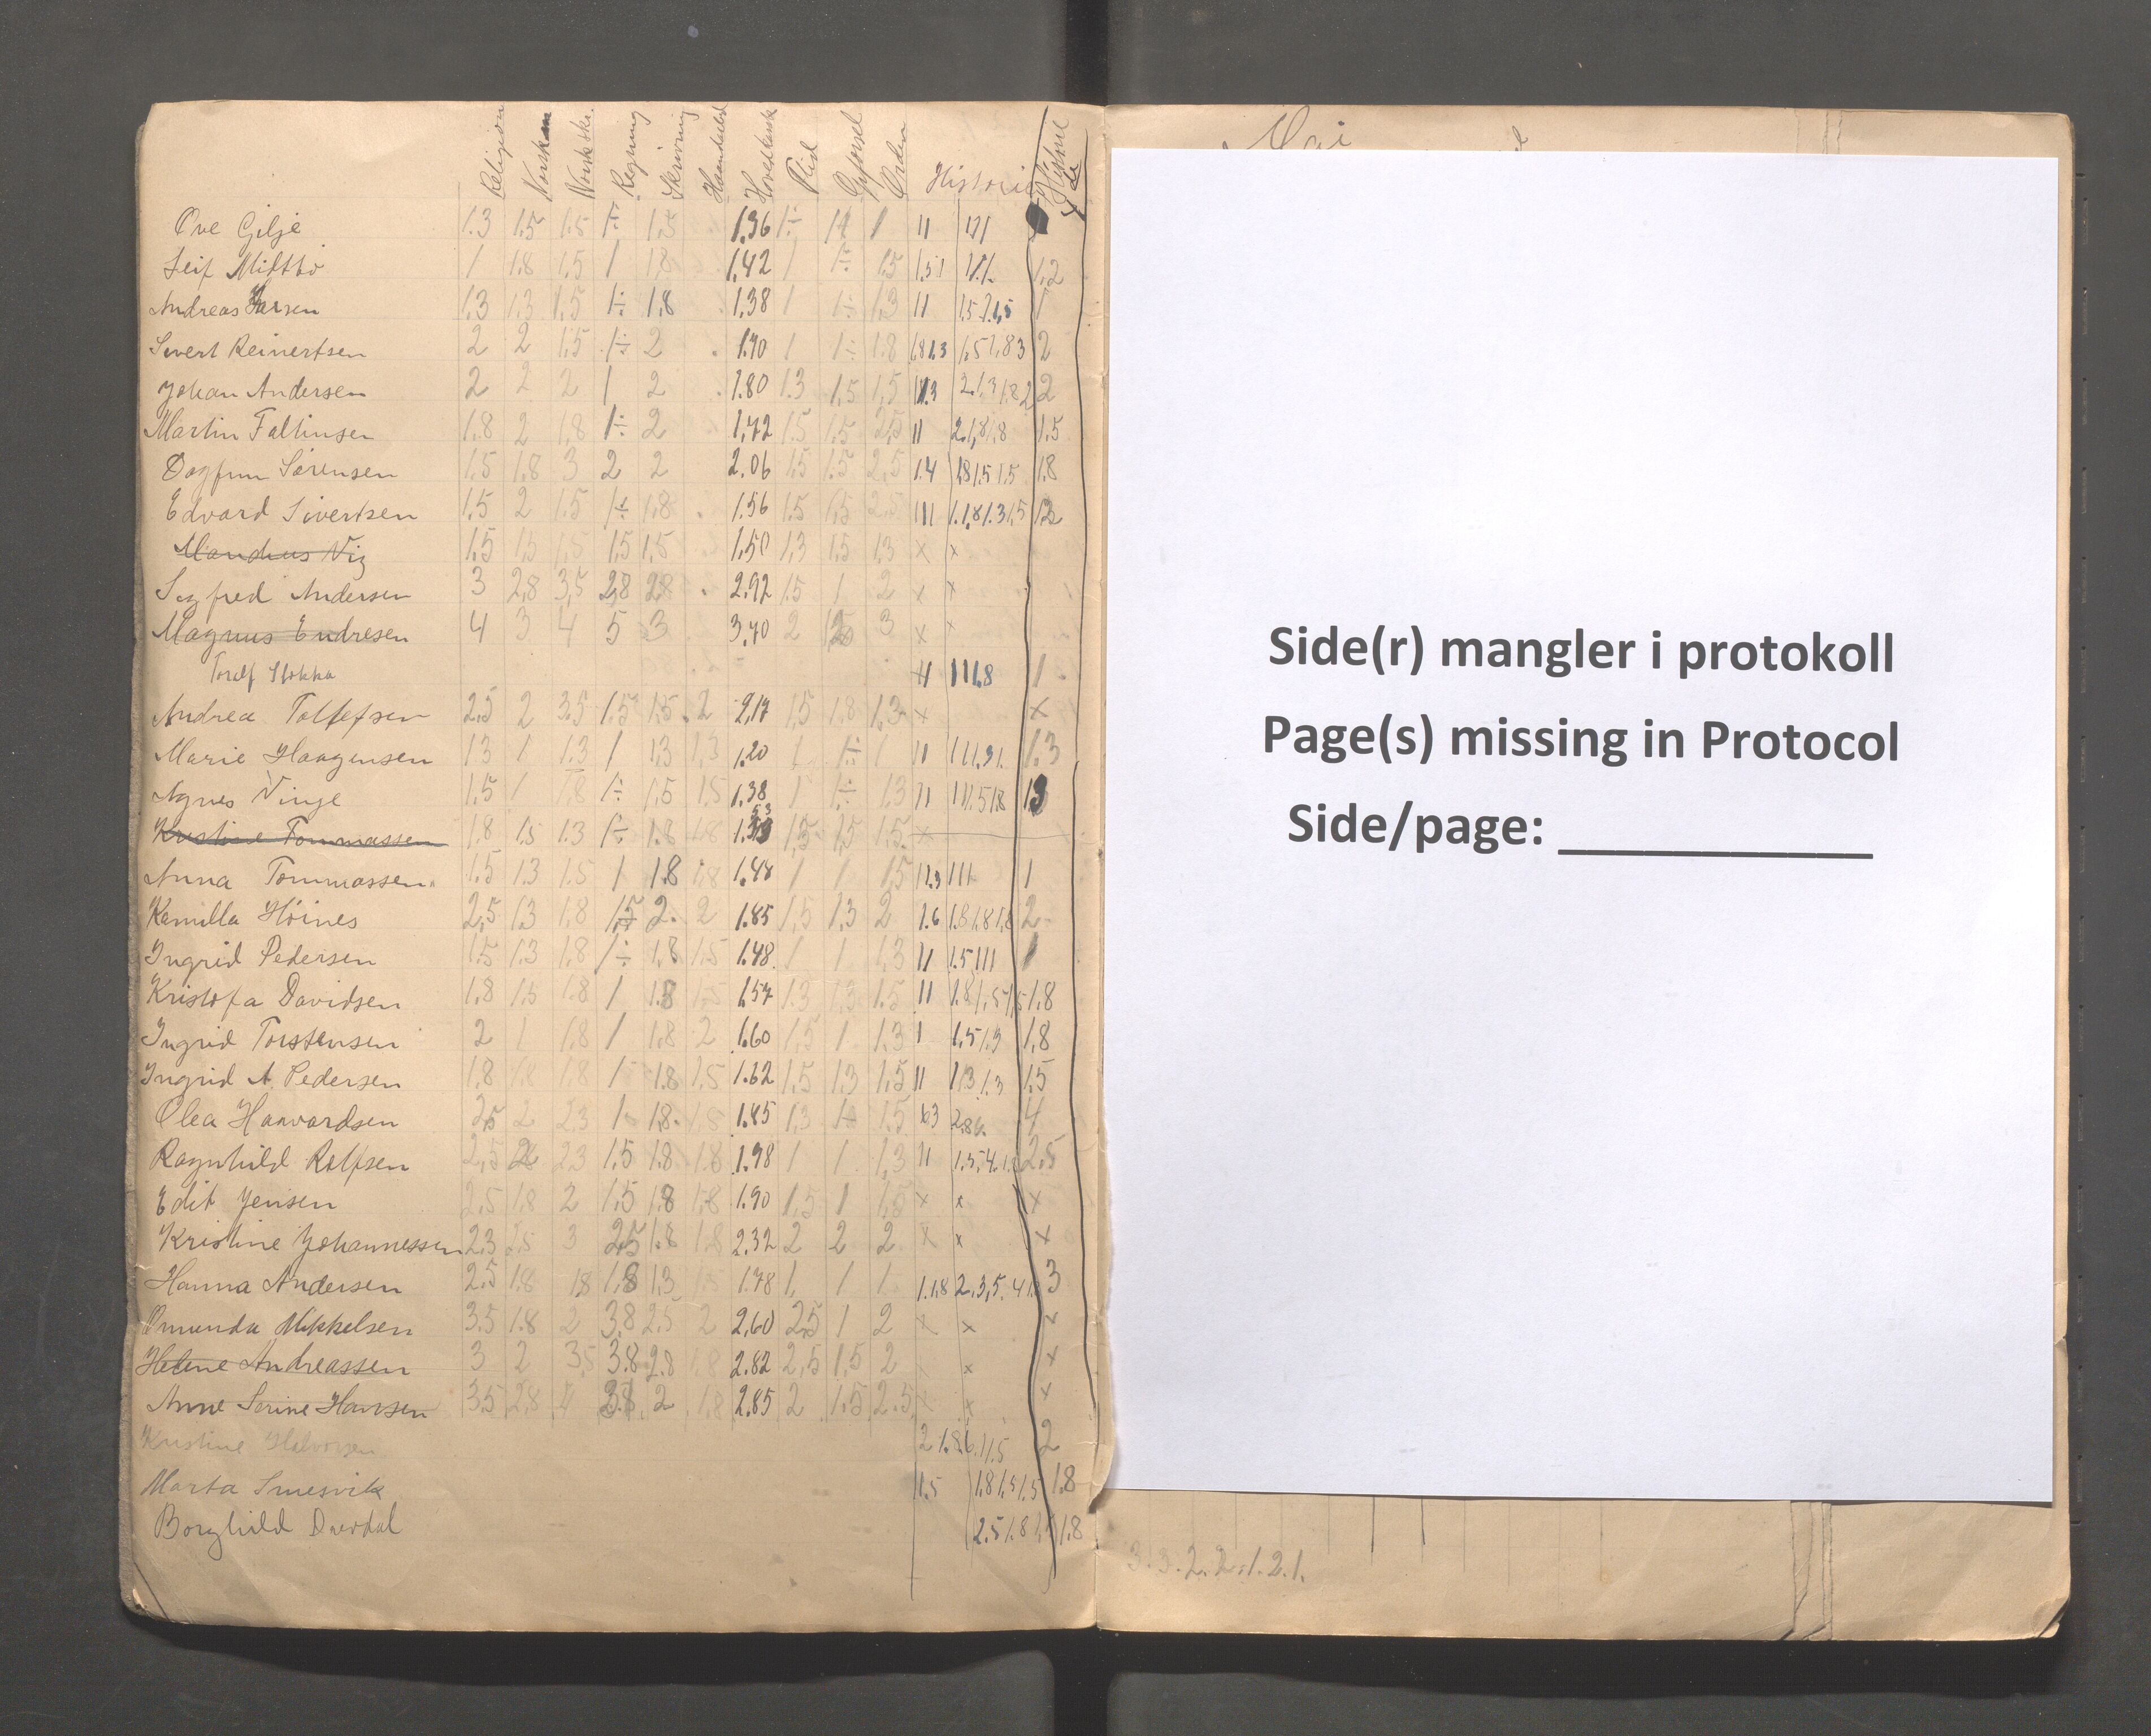 Religion Norsk m Norsk skr. Regning Skrivning Haandarb Hovedkar Flid Opførsel Orden Historie Historie
Ove Gilje 1.3 1.5 1.5 1÷ 1.5 1.36 1÷ 1 11 111
Leif Miftbø 1 1.8 1.5 1 1.8 1.42 1 1÷ 1.5 1.51 1.1. 1,2
Andreas Larsen 1.3 1.3 1.5 1÷ 1.8 1.38 1 1÷ 1.3 11 1
Sivert Reinertsen 2 2 1.5 1÷ 2 1.70 1 1÷ 1.8 1.81.3 1.51.83 2
Johan Andersen 2 2 2 1 2 1.80 1.3 1.5 1.5 2.1.31.82 2
Martin Faltinsen 1.8 2 1.8 1÷ 2 1.72 1.5 1.5 2.5 11 2.1,81.8 1.5
Dagfinn Sørensen 1.5 1.8 3 2 2 2.06 1.5 1.5 2.5 1.4 1.81.51.5 1.8
Edvard Sivertsen 1.5 2 1.5 1÷ 1.8 1.56 1.5 1.5 2.5 111 1.1.81.31.5
Mandius Viz 1.5 1.5 1.5 1.5 1.5 1.50 1.3 1.5 1.3 x x
Sigfred Andersen 3 2.8 3.5 2.8 2.8 2.92 1.5 1 2 x x
Magnus Endresen 4 3 4 5 3 3.70 2 3 x x
Toralf Stokka 111.8 1
Andrea Tollefsen 2.5 2 3.5 1.5 1.5 2 2.17 1.5 1.8 1.3 x x
Marie Haagensen 1.3 1 1.3 1 1.3 1.3 1.20 1 1÷ 1 11 1.3
Agnes Vinge 1.5 1 1.8 1÷ 1.5 1.5 1.38 1 1÷ 1.3 11 111.51.8
Kristine Tommassen 1.8 1.5 1.3 1÷ 1.8 1.8 1.5 1.5 1.5 x
Anna Tommassen 1.5 1.3 1.5 1 1.8 1.8 1.48 1 1 1.5 11.3 111 1
Kamilla Høines 2.5 1.3 1.8 1.5 2 2 1.85 1.5 1.3 2 1.6 1.81.81.8 2
Ingrid Pedersen 1.5 1.3 1.8 1÷ 1.8 1.5 1.48 1 1 1.3 11 1.5111 1
Kristofa Davidsen 1.8 1.5 1.8 1 1.8 1.5 1.57 1.3 1.3 1.5 11 1.81.51.5 1.8
Ingrid Torstensen 2 1 1.8 1 1.8 2 1.60 1.5 1 1.3 1 1.51.5 1.8
Ingrid A. Pedersen 1.8 1.8 1.8 1 1.8 1.5 1.62 1.5 1.3 1.5 11 1.31.3 1.5
Olea Haavardsen 2.5 2 2.3 1 1.8 1.8 1.85 1.3 1.5 4
Ragnhild Rolfsen 2.5 2 2.3 1.5 1.8 1.8 1.98 1 1 1.3 11 2.5
Edit Jensen 2.5 1.8 2 1.5 1.8 1.8 1.90 1.5 1 1.5 x x x
Kristine Johannessen 2.3 2.5 3 2.5 1.8 1.8 2.32 2 2 2 x x x
Hanna Andersen 2.5 1.8 1.8 1.8 1.3 1.5 1.78 1 1 1 1.1.8 3
Omunda Mikkelsen 3.5 1.8 2 3.8 2.5 2 2.60 2.5 1 2 x x x
Helene Andreassen 3 2 3.5 3.8 2.8 1.8 2.82 2.5 1.5 2 x x
Anne Serine Hansen 3.5 2.8 4 3.8 2 1.8 2.85 2 1.5 2.5 x x
Kristine Halvorsen 2
Marta Smesvik 1.5 1.81.51.5 1.8
Borghild 2.51.8 1.8
Mai
Side(r) mangler i protokoll
Page(s) missing in Protocol
Side/page: ____________
3.3.2.2.1.2.1.